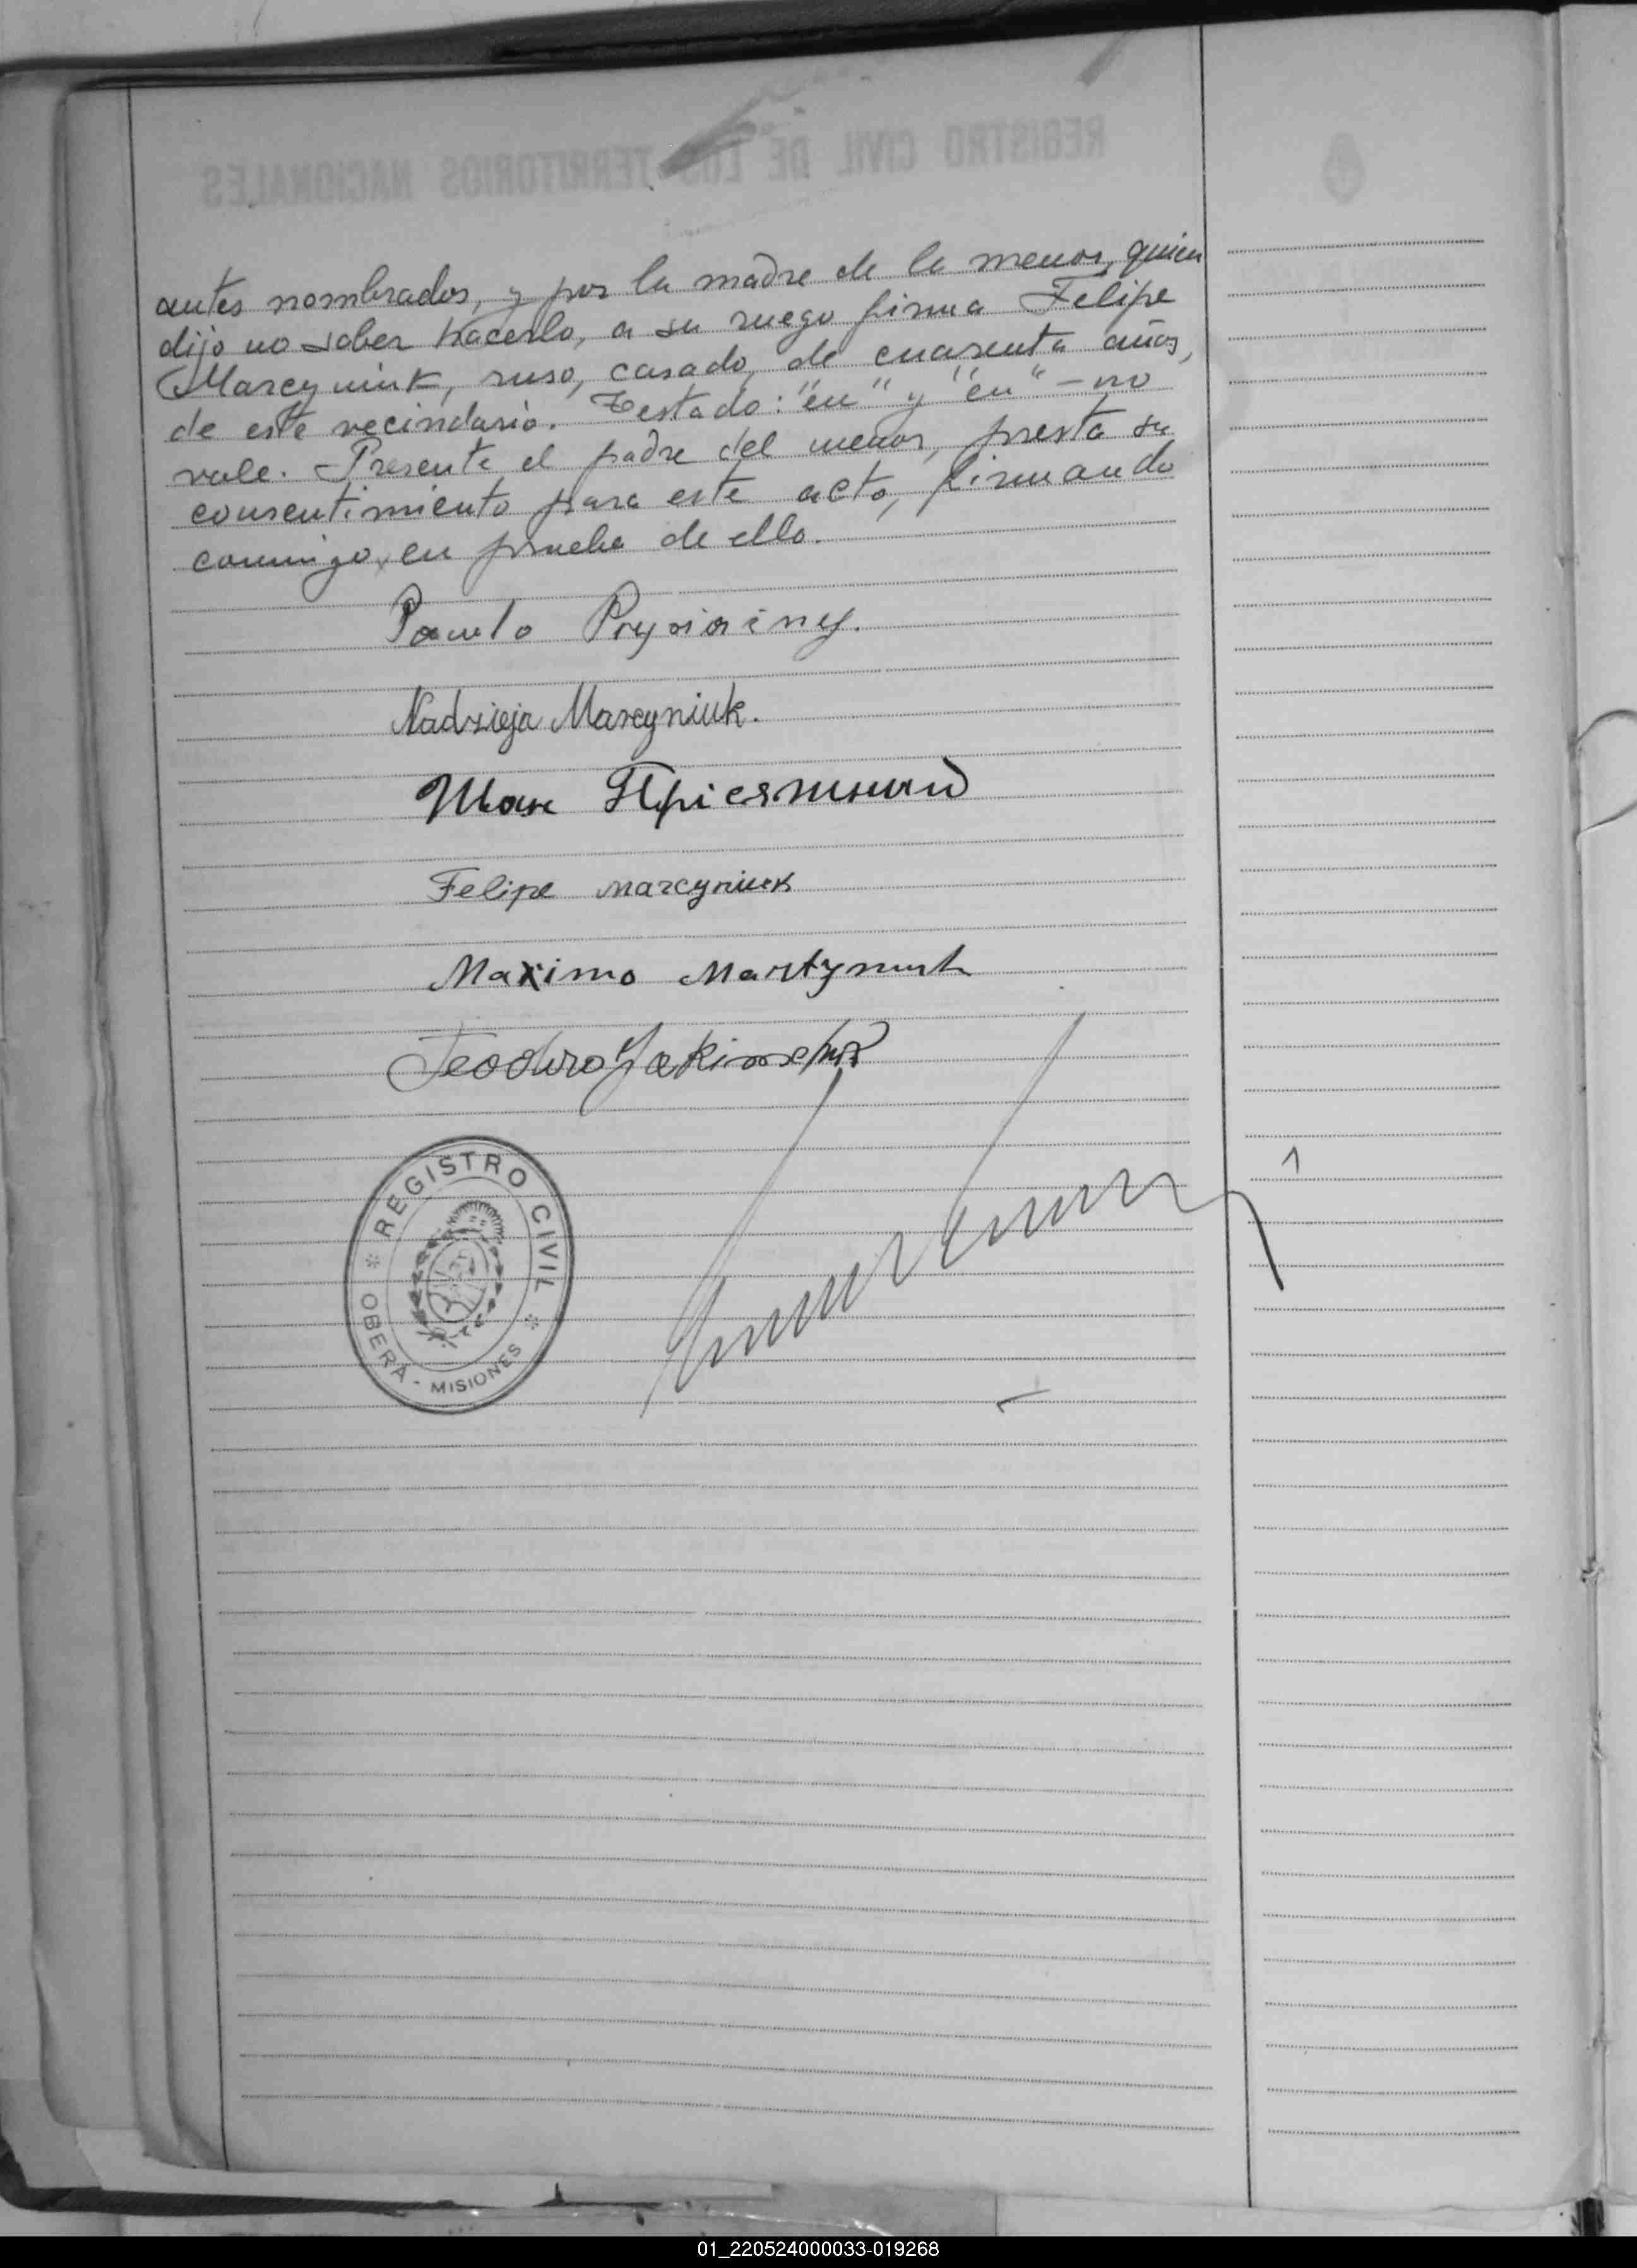 antes nombrados, y por la madre de la menor, quien
dijo no saber hacerlo, a su ruego firma Felipe
Marcyniuk, ruso, casado, de cuarenta años,
de este vecindario. Testado: "en" y "en" - no
vale. Presente el padre del menor, presta su
consentimiento para este acto, firmando
conmigo, en prueba de ello.
Pawlo
Nadzieja Marcyniuk.
Felipe Marcyniuk
Maximo Martyniuk
Teodoro
REGISTRO CIVIL
OBERÁ - MISIONES
01_220524000033-019268